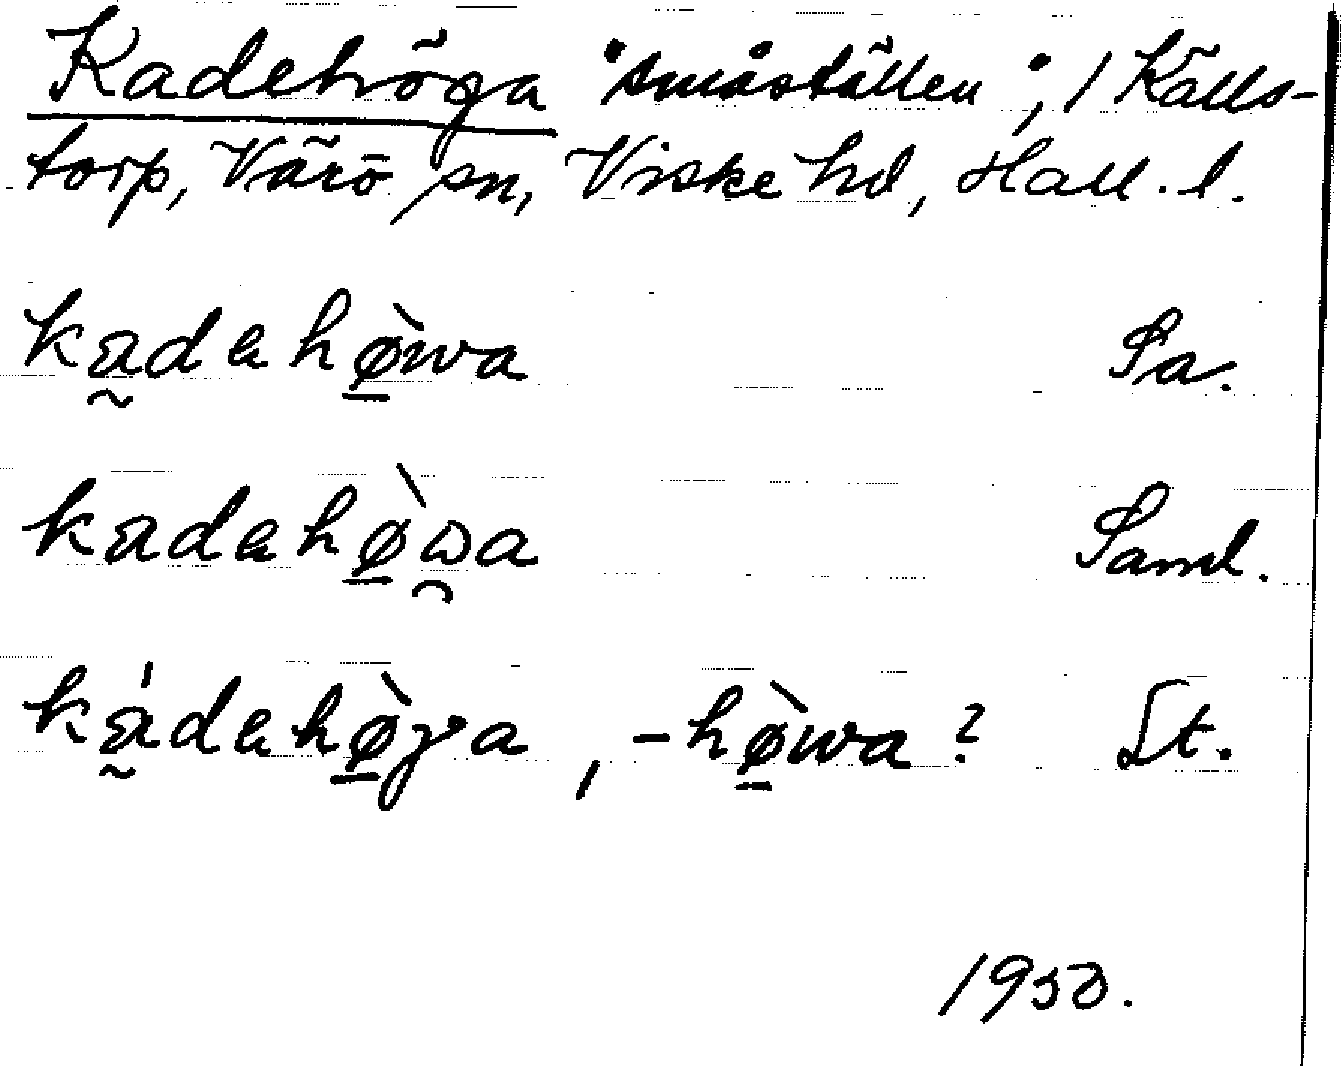 Kadehöga "småställen", / Källs-
torp, Värö sn, Viske hd, Hall. l.
kadahø̱̀wa Sa.
kadahø̱̀ωa Saml.
ká̰dahø̱̀γa, -hø̱̀wa? St.
1950.